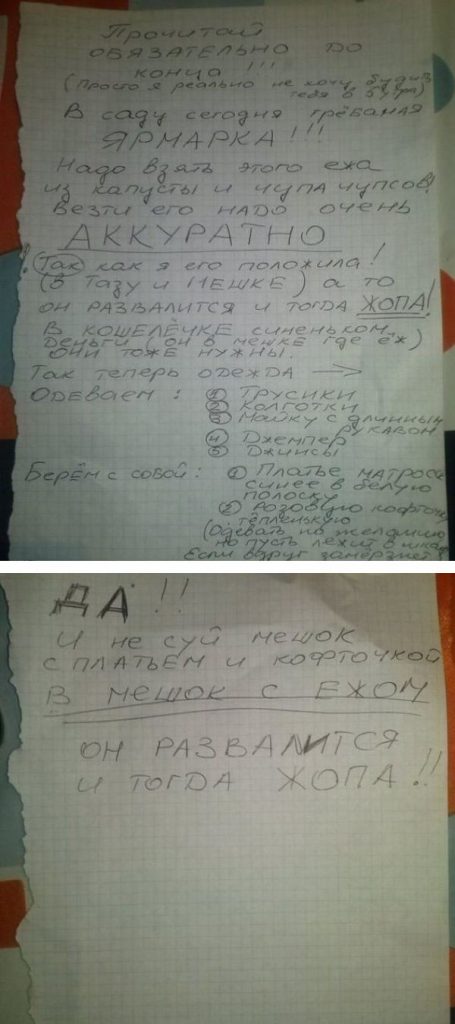 Прочитай
ОБЯЗАТЕЛЬНО ДО
КОНЦА !!!
(Просто я реально не хочу будить
тебя в 5 утра)
В саду сегодня грёбаная
ЯРМАРКА!!!
Надо взять этого ежа
из капусты и чупа чупсов!
Везти его НАДО очень
АККУРАТНО
! (Так) как я его положила!
(В Тазу и МЕШКЕ) а то
он РАЗВАЛИТСЯ и тогда ЖОПА!
В КОШЕЛЁЧКЕ синеньком
деньги (он в мешке где ёж)
Они тоже нужны.
Так теперь одежда →
Одеваем: ① Трусики
② Колготки
③ Майку с длинным
рукавом
④ Джемпер
⑤ Джинсы
Берём с собой: ① Платье матроса
синее в белую
полоску
② Розовую кофточку
тёпленькую
(Одевать по желанию
но пусть лежит в шкафу
Если вдруг замёрзнет)
ДА!!
И не суй мешок
с платьем и кофточкой
В МЕШОК С ЕЖОМ
ОН РАЗВАЛИТСЯ
И ТОГДА ЖОПА!!